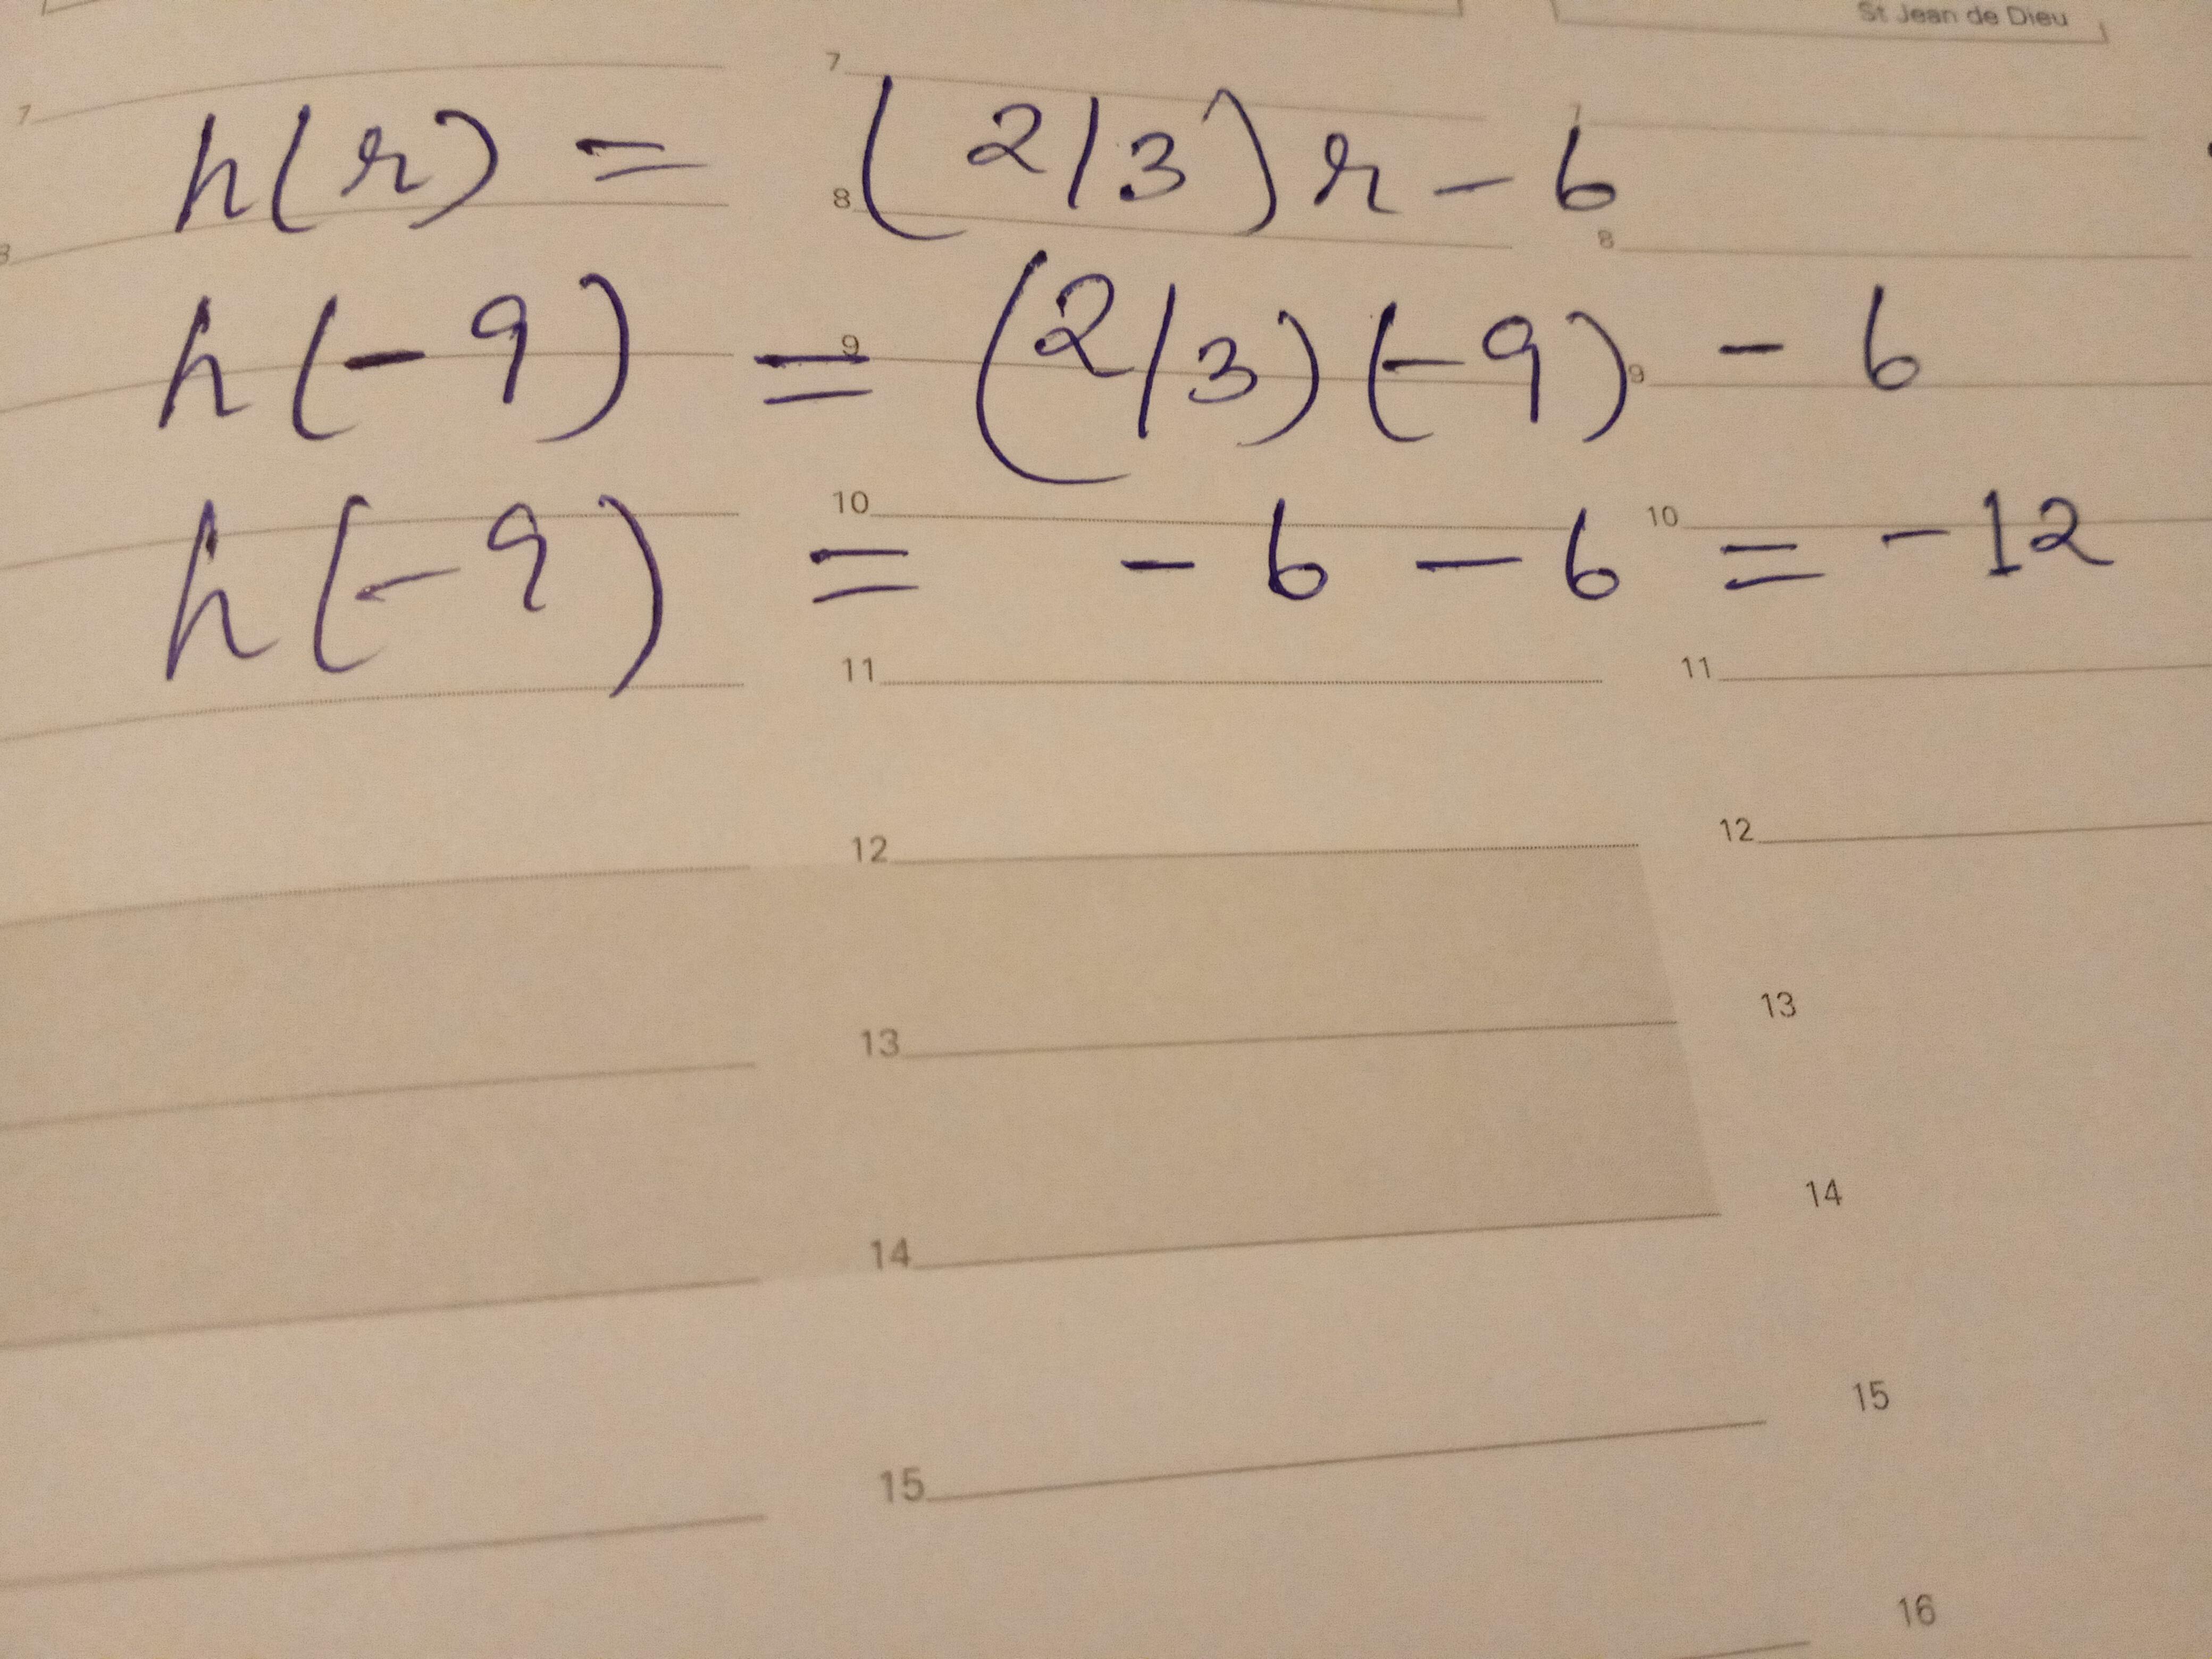 St Jean de Dieu
7 7 7
h(r) = (2/3)r - 6
8 8 8
h(-9) = (2/3)(-9) - 6
9 9
h(-9) = -6 - 6 = -12
10 10
11 11
12 12
13 13
14 14
15 15
16